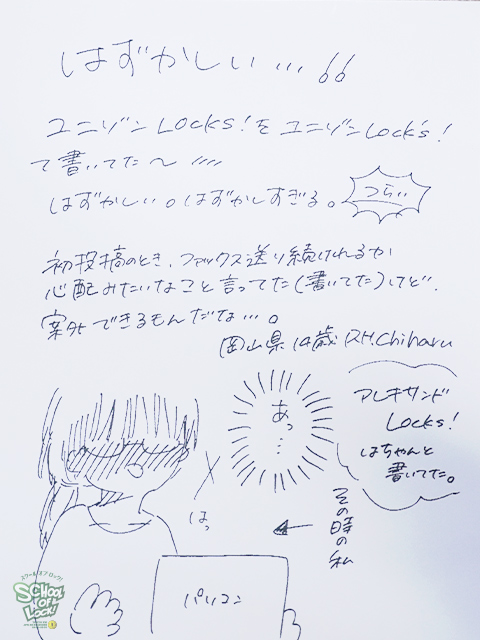 はずかしい…
ユニゾンLOCKS!をユニゾンLock's!
て書いてた〜
はずかしい。はずかしすぎる。
つらい
初投稿のとき、ファックス送り続けれるか
心配みたいなこと言ってた(書いてた)けど、
案外できるもんだな…。
岡山県 14歳 R.H.Chiharu
あっ…
アレキサンド
Locks!
はちゃんと
書いてた。
はっ
その時の私
パソコン
スクールオブロック!
SCHOOL
OF
LOCK!